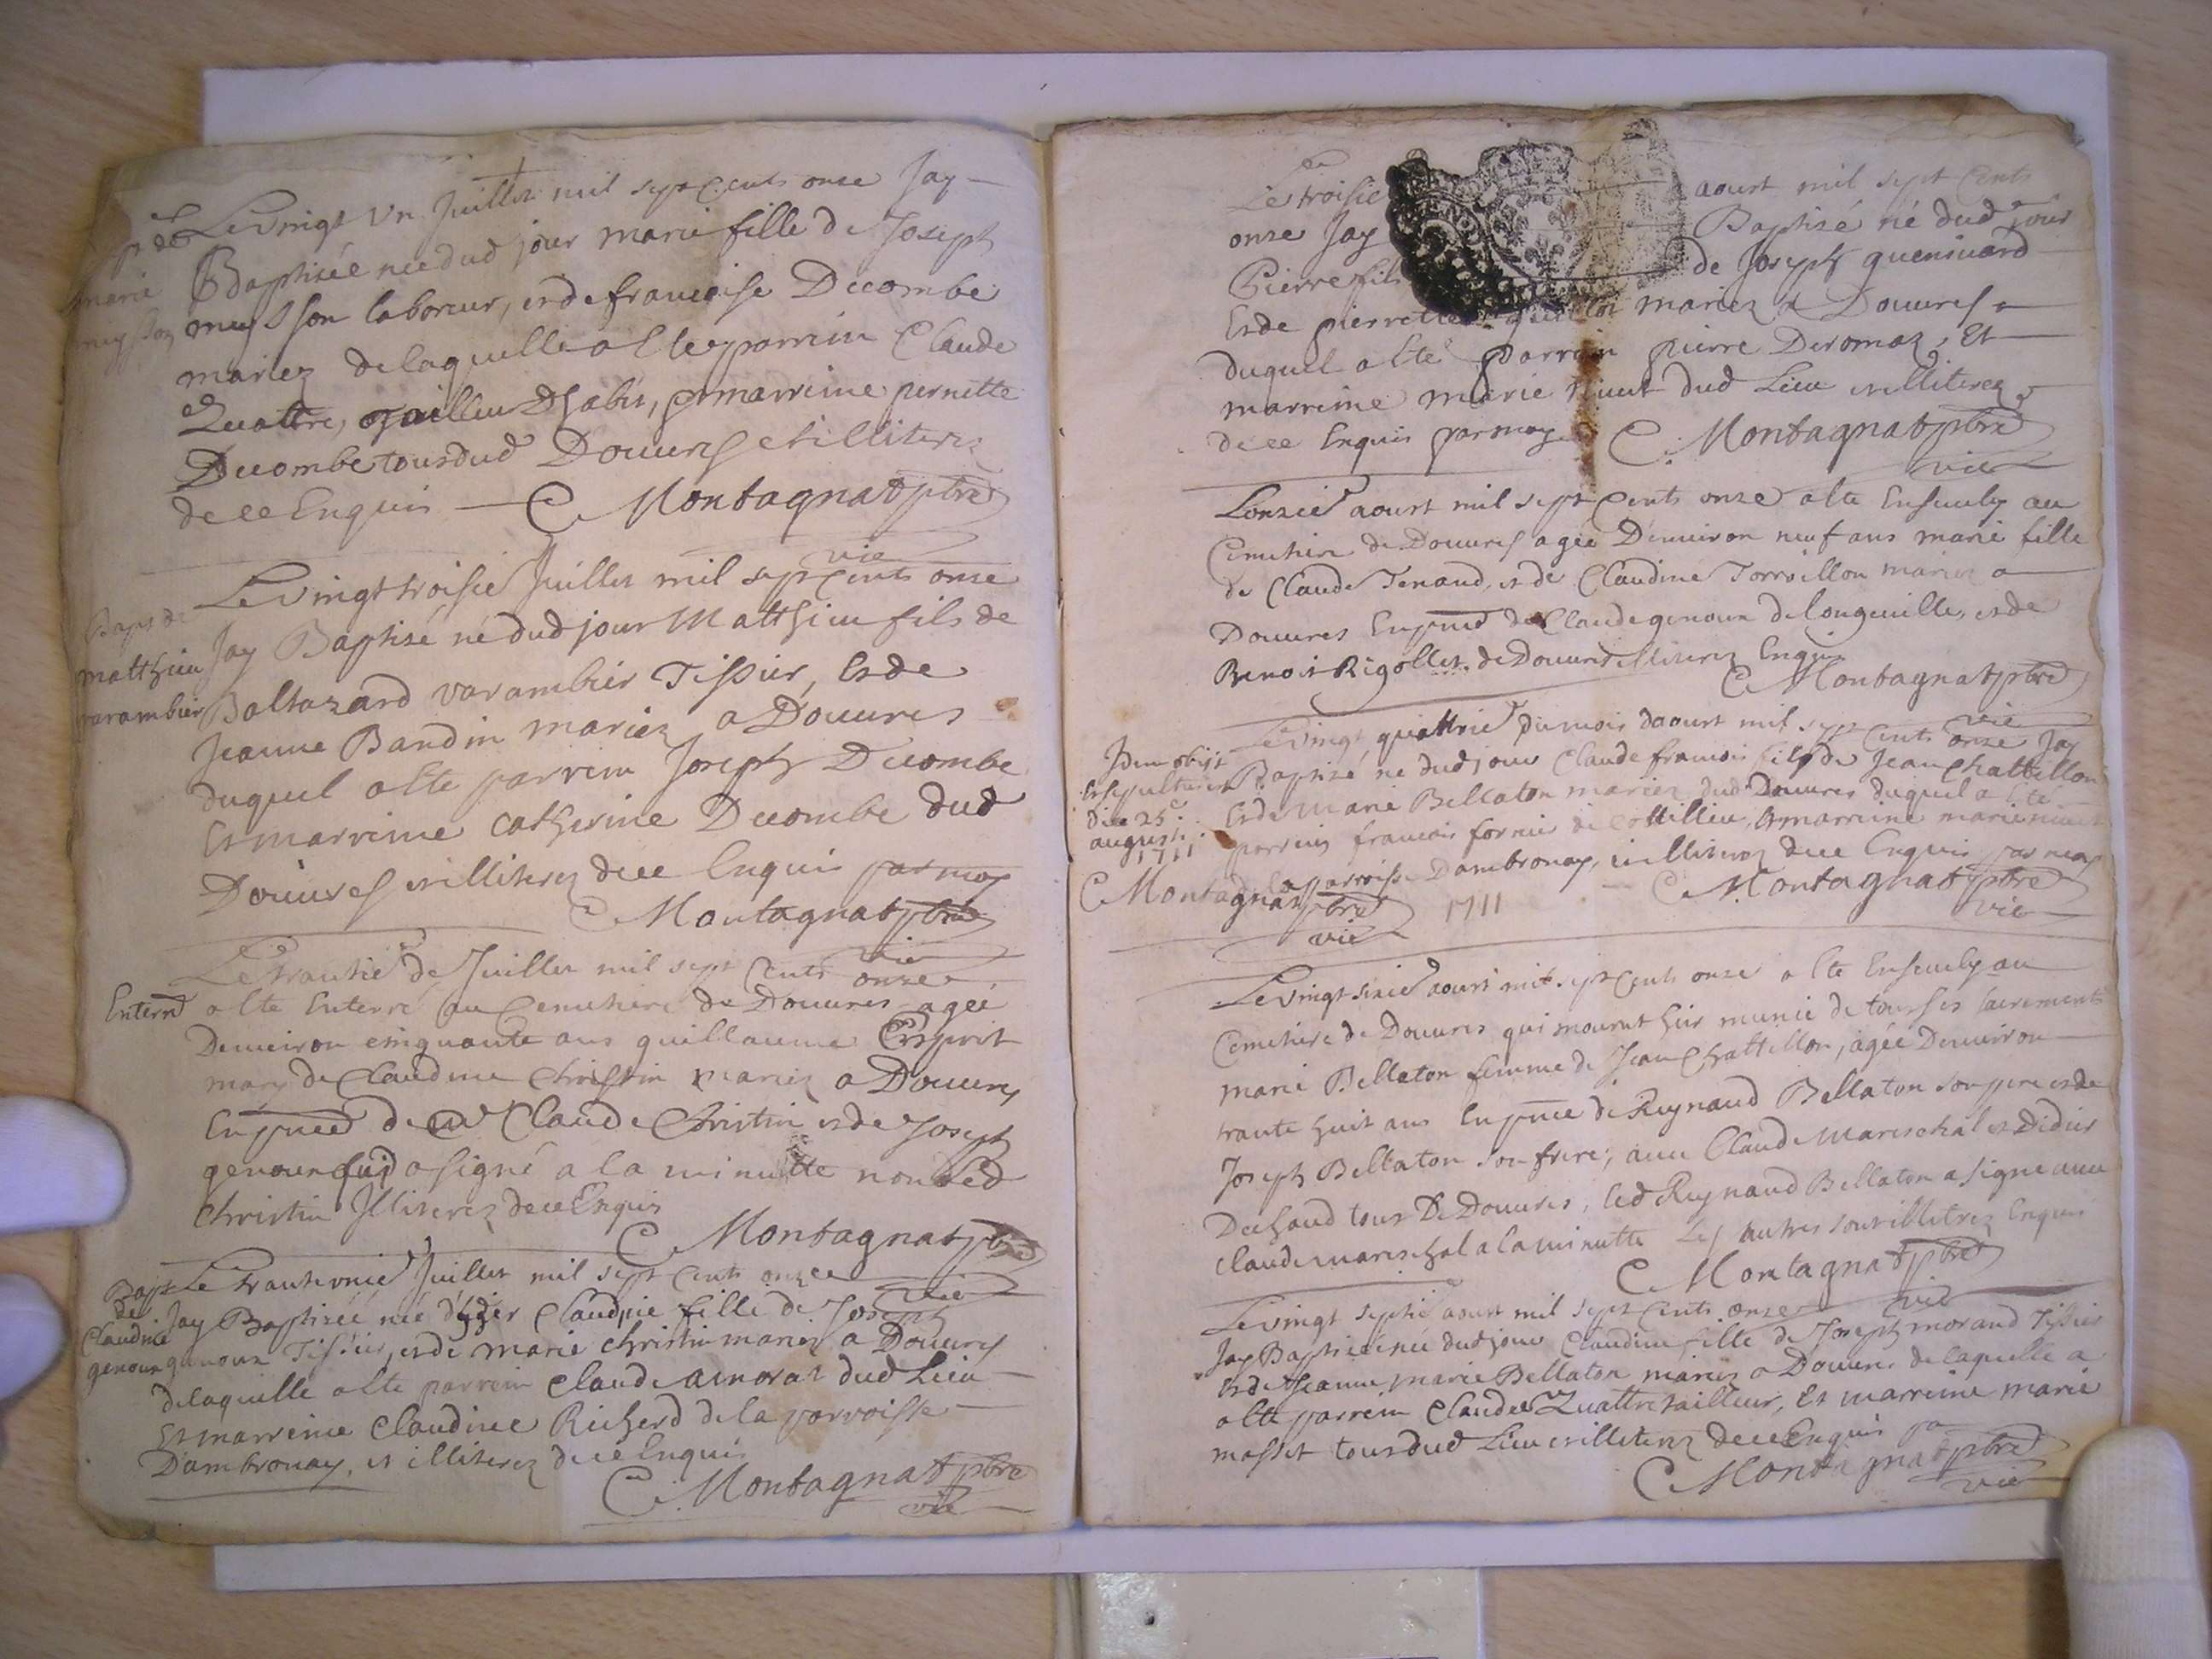 p de
marie
Le vingt un Juillet mil sept cents onze Jay
Baptisée née dud jour marie fille de Joseph
son laboreur, et de francoise Decombe
mariez de laquelle a Esté parrein Claude
Quattre, tailleur Dhabis, et marreine pernette
Decombe tous dud Douures et illiterez
de ce Enquis C Montagnat pbre
vie
Bapt de
matthieu
varambier
Le vingt troisie Juillet mil sept cents onze
Jay Baptisé né dud jour Matthieu fils de
Baltazard varambier Tissier, Et de
Jeanne Baudin mariez a Douures
duquel a Esté parrein Joseph Decombe
Et marreine catherine Decombe dud
Douures et illiterez de ce Enquis par moy
C Montagnat pbre
vie
Enterrd
Le trantie de Juillet mil sept cents onze
a Esté Enterré au Cemetiere de Douures agée
Denueiron cinquante ans guillaume Esprit
mary de Claudine Christin mariez a Douures
En pnce de Claude Christin et de Joseph
genoux qui a signé a la minutte non led
Christin Illiterez de ce Enquis
C Montagnat pbre
vie
Bapt
de
Claudine
genoux
Le trante unie Juillet mil sept cents onze
Jay Baptisée née d'hier Claudine fille de Joseph
genoux Tissier, et de marie christin mariez a Douures
de laquelle a Esté parrein Claude amorat dud Lieu
Et marreine Claudine Richerd de la parroisse
Dambronay, et illiterez de ce Enquis
C. Montagnat pbre
vie
Le troisie aoust mil sept cents
onze Jay Baptisé né dud jour
Pierre fils de Joseph gueniuard
Et de pierrette mariez a Douures
duquel a Esté parrein pierre Deromaz, Et
marreine marie niuet dud Lieu et illiterez
de ce Enquis par moy C. Montagnat pbre
vie
Lonzie aoust mil sept cents onze a Esté Enseuely au
Cemetiere de Douures agée Denuiron neuf ans marie fille
de Claude Tenand, et de Claudine Torroillon mariez a
Douures En pnce de Claude genoux de longeuille, et de
Benoit Rigollet de Douures illiterez Enquis
C Montagnat pbre
vie
Idem obijt
et sepultus est
die 25e
augusti
1711
C Montagnat pbre
vie
Le vingt quattrie du mois daoust mil sept cents onze Jay
Baptisé né dud jour Claude francois fils de Jean Chattillon
Et de Marie Bellaton mariez dud Douures duquel a Esté
parrein francois fornier de Et marreine marie niuet
parroisse Dambronay, et illiterez de ce Enquis par moy
1711 C. Montagnat pbre
vie
Le vingt sixie aoust mil sept cents onze a Esté Enseuely au
Cemetiere de Douures qui mourut hier munie de tous ses sacrements
marie Bellaton femme de Jean Chattillon, agée Denuiron
trante huit ans En pnce de Reynaud Bellaton son pere et de
Joseph Bellaton son frere, auec Claude Mareschal et Didier
Dechaud tous De Douures, led Reynaud Bellaton a signe auec
Claude mareschal a la minutte Les autres sont illiterez Enquis
C Montagnat pbre
vie
Le vingt septie aoust mil sept cents onze
Jay Baptisée née dud jour Claudine fille de Joseph morand Tissier
Et de Jeanne marie Bellaton mariez a Douures de laquelle a
Esté parrein Claude Quattre tailleur, Et marreine marie
masset tous dud Lieu et illiterez de ce Enquis
C Montagnat pbre
vie